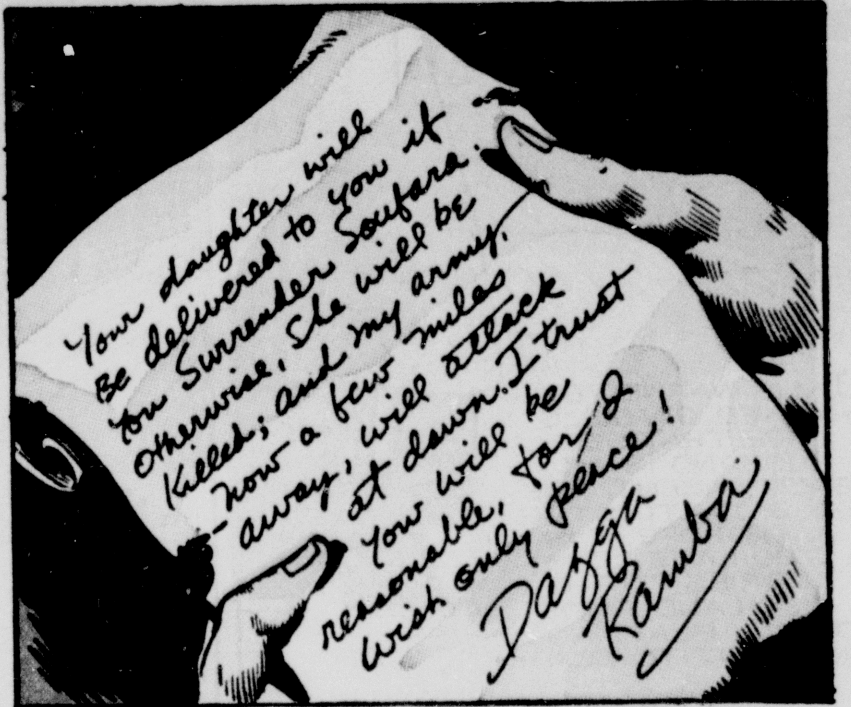 Your daughter will
Be delivered to you if
You Surrender Soufara.
Otherwise, She will be
Killed; and my army,
- now a few miles
away, will attack
at dawn. I trust
You will be
reasonable, for I
wish only peace!
Dazga
Ramba